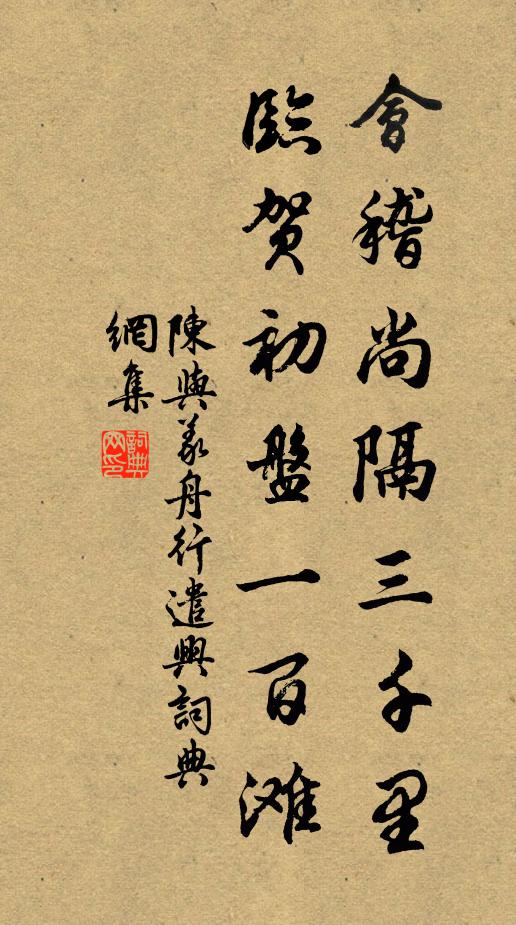 會稽尚隔三千里
臨賀初盤一百滩
陳與義舟行遣興詞典
網集
詞典
网印